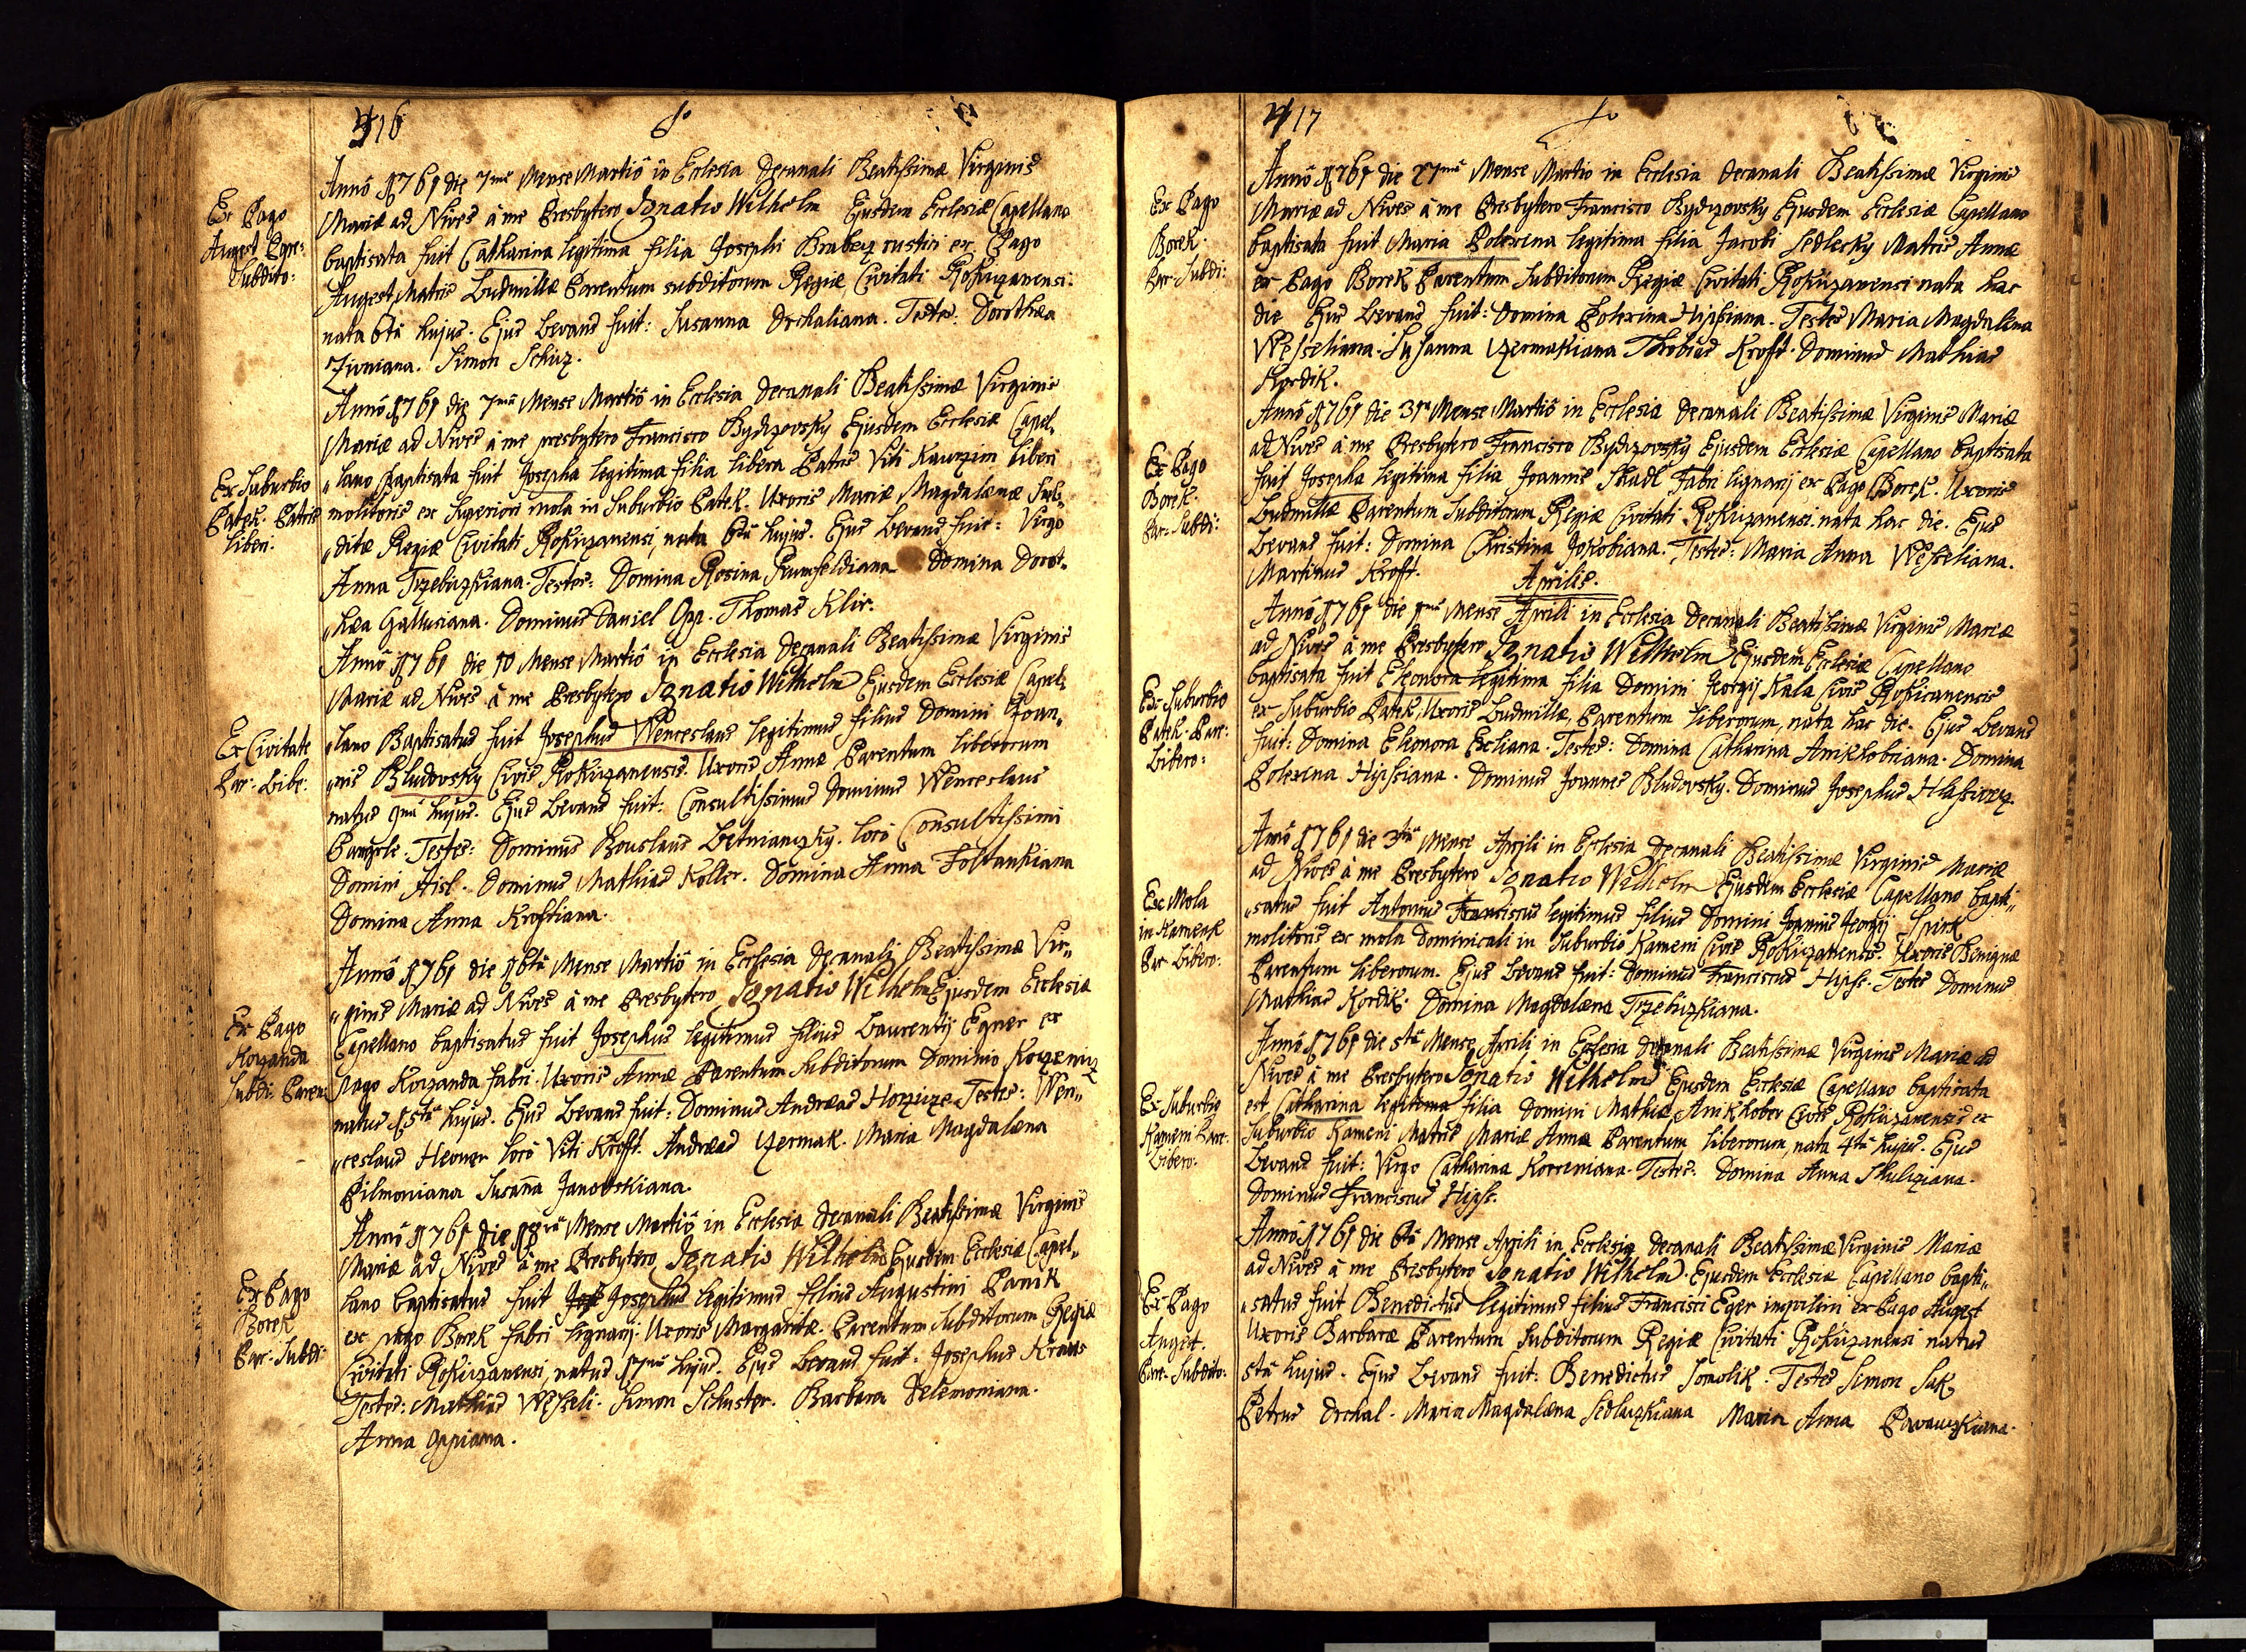 416
Ex Pago
Augest Pare:
Subdito:
Anno 1761 die 7ma Mense Martio in Ecclesia Decanali Beatissimæ Virginis
Mariæ ad Nives à me Presbytero Ignatio Wilhelm Ejusdem Ecclesiæ Capellano
baptisata fuit Catharina legitima filia Josephi Brabecz rustici ex Pago
Augest, Matris Ludmillæ Parentum subditorum Regiæ Civitati Rokiczanensi.
nata 6ta hujus. Ejus Levans fuit: Susanna Drchaliana. Testes: Dorothea
Zivniana. Simon Schüz.
Ex Suburbio
Patek. Patris
liberi.
Anno 1761 die 7ma Mense Martio in Ecclesia Decanali Beatissimæ Virginis
Mariæ ad Nives à me presbytero Francisco Bydzovsky Ejusdem Ecclesiæ Capel„
„lano Baptisata fuit Josepha legitima filia libera Patris Viti Kaurzim liberi
molitoris ex Superiori mola in Suburbio Patek. Uxoris Mariæ Magdalenæ Sub„
„ditæ Regiæ Civitati Rokiczanensi, nata 6ta hujus. Ejus Levans fuit: Virgo
Anna Trzebizkiana. Testes: Domina Rosina Rumfeldiana Domina Dorot„
„hea Gallusiana. Dominus Daniel Opp. Thomas Klir.
Ex Civitate
Par: Libe:
Anno 1761 die 10 Mense Martio in Ecclesia Decanali Beatissimæ Virginis
Mariæ ad Nives à me Presbytero Ignatio Wilhelm Ejusdem Ecclesiæ Capel„
„lano Baptisatus fuit Josephus Wenceslaus legitimus filius Domini Joan„
„nis Bludovsky Civis Rokiczanensis. Uxoris Annæ Parentum liberorum
natus 9na hujus. Ejus Levans fuit: Consultissimus Dominus Wenceslaus
Testes: Dominus Bouslaus Letmanczky. loco Consultissimi
Domini Aisl. Dominus Mathias Koller. Domina Anna Foltankiana
Domina Anna Kroftiana.
Ex Pago
Korzanda
Subdi: Paren:
Anno 1761 die 16ta Mense Martio in Ecclesia Decanali Beatissimæ Vir„
„ginis Mariæ ad Nives à me Presbytero Ignatio Wilhelm Ejusdem Ecclesiæ
Capellano baptisatus fuit Josephus legitimus filius Laurentii Egner ex
pago Korzanda fabri. Uxoris Annæ Parentum Subditorum Dominio
natus 15ta hujus. Ejus Levans fuit: Dominus Andreas Horzize. Testes: Wen„
„ceslaus Hevner loco Viti Kroft. Andreas Czermak. Maria Magdalena
Pilmoniana Susanna Janovskiana.
Ex Pago
Borek
Par: Subdi:
Anno 1761 die 18va Mense Martio in Ecclesia Decanali Beatissimæ Virginis
Mariæ ad Nives à me Presbytero Ignatio Wilhelm Ejusdem Ecclesiæ Capel„
lano baptisatus fuit Josephus legitimus filius Augustini Panik
ex pago Borek fabri lignarij. Uxoris Margaritæ. Parentum Subditorum Regiæ
Civitati Rokiczanensi, natus 17ma hujus. Ejus Levans fuit: Josephus Kraus
Testes: Mathias Wesseli. Simon Schuster. Barbara Filemoniana.
Anna Oppiana.
417
Ex Pago
Borek.
Par: Subdi:
Anno 1761 die 27ma Mense Martio in Ecclesia Decanali Beatissimæ Virginis
Mariæ ad Nives à me Presbytero Francisco Bydzovsky Ejusdem Ecclesiæ Capellano
baptisata fuit Maria Polexina legitima filia Jacobi Sedlecky Matris Annæ
ex Pago Borek Parentum Subditorum Regiæ Civitati Rokiczanensi nata hac
die Ejus Levans fuit: Domina Polexina Hipssiana. Testes Maria Magdalena
Wesseliana. Susanna Czermakiana Thobias Kroft. Dominus Mathias
Kordik.
Ex Pago
Borek.
Par: Subdi:
Anno 1761 die 31ma Mense Martio in Ecclesia Decanali Beatissimæ Virginis Mariæ
ad Nives à me Presbytero Francisco Bydzovsky Ejusdem Ecclesiæ Capellano baptisata
fuit Josepha legitima filia Joannis Skadl Fabri lignarij ex Pago Borek. Uxoris
Ludmillæ Parentum Subditorum Regiæ Civitati Rokiczanensi nata hac die. Ejus
Levans fuit: Domina Christina Jakobiana. Testes: Maria Anna Wesseliana.
Martinus Kroft.
Aprilis.
Ex Suburbio
Patek. Pare:
Libero:
Anno 1761 die 1ma Mense Aprili in Ecclesia Decanali Beatissimæ Virginis Mariæ
ad Nives à me Presbytero Ignatio Wilhelm Ejusdem Ecclesiæ Capellano
baptisata fuit Eleonora legitima filia Domini Georgij Kala Civis Rokicanensis
ex Suburbio Patek, Uxoris Ludmillæ, Parentum liberorum, nata hac die. Ejus Levans
fuit: Domina Eleonora Exliana. Testes: Domina Catharina Anikhobriana. Domina
Polexina Hipssiana. Dominus Joannes Bludovsky. Dominus Josephus Hlassivecz.
Ex Mola
in Kamenk
Par: Libero:
Anno 1761 die 3tia Mense Aprili in Ecclesia Decanali Beatissimæ Virginis Mariæ
ad Nives à me Presbytero Ignatio Wilhelm Ejusdem Ecclesiæ Capellano bapti„
„satus fuit Antonius Franciscus legitimus filius Domini Joannis Georgij Spirk
molitoris ex mola Dominicali in Suburbio Kameni Civis Rokiczanensis. Uxoris Benignæ
Parentum liberorum. Ejus Levans fuit: Dominus Franciscus Hipss. Testes Dominus
Mathias Kordik. Domina Magdalena Trzebizkiana.
Ex Suburbio
Kameni Pare:
Libero:
Anno 1761 die 5ta Mense Aprili in Ecclesia Decanali Beatissimæ Virginis Mariæ ad
Nives à me Presbytero Ignatio Wilhelm Ejusdem Ecclesiæ Capellano baptisata
est Catharina legitima filia Domini Mathiæ Anikhober Civis Rokiczanensis ex
Suburbio Kameni Matris Mariæ Annæ Parentum liberorum, nata 4ta hujus. Ejus
Levans fuit: Virgo Catharina Korreniana. Testes: Domina Anna Skuliziana.
Dominus Franciscus Hipss.
Ex Pago
Augest.
Pare: Subdito:
Anno 1761 die 6ta Mense Aprili in Ecclesia Decanali Beatissimæ Virginis Mariæ
ad Nives à me Presbytero Ignatio Wilhelm Ejusdem Ecclesiæ Capellano bapti„
„satus fuit Benedictus legitimus filius Francisci Eger inquilini ex Pago Augest
Uxoris Barbaræ Parentum Subditorum Regiæ Civitati Rokiczanensi natus
5ta hujus. Ejus Levans fuit: Benedictus Somolik. Testes Simon Sak,
Petrus Drchal. Maria Magdalena Sedlaczkiana Maria Anna Pavauczkiana.